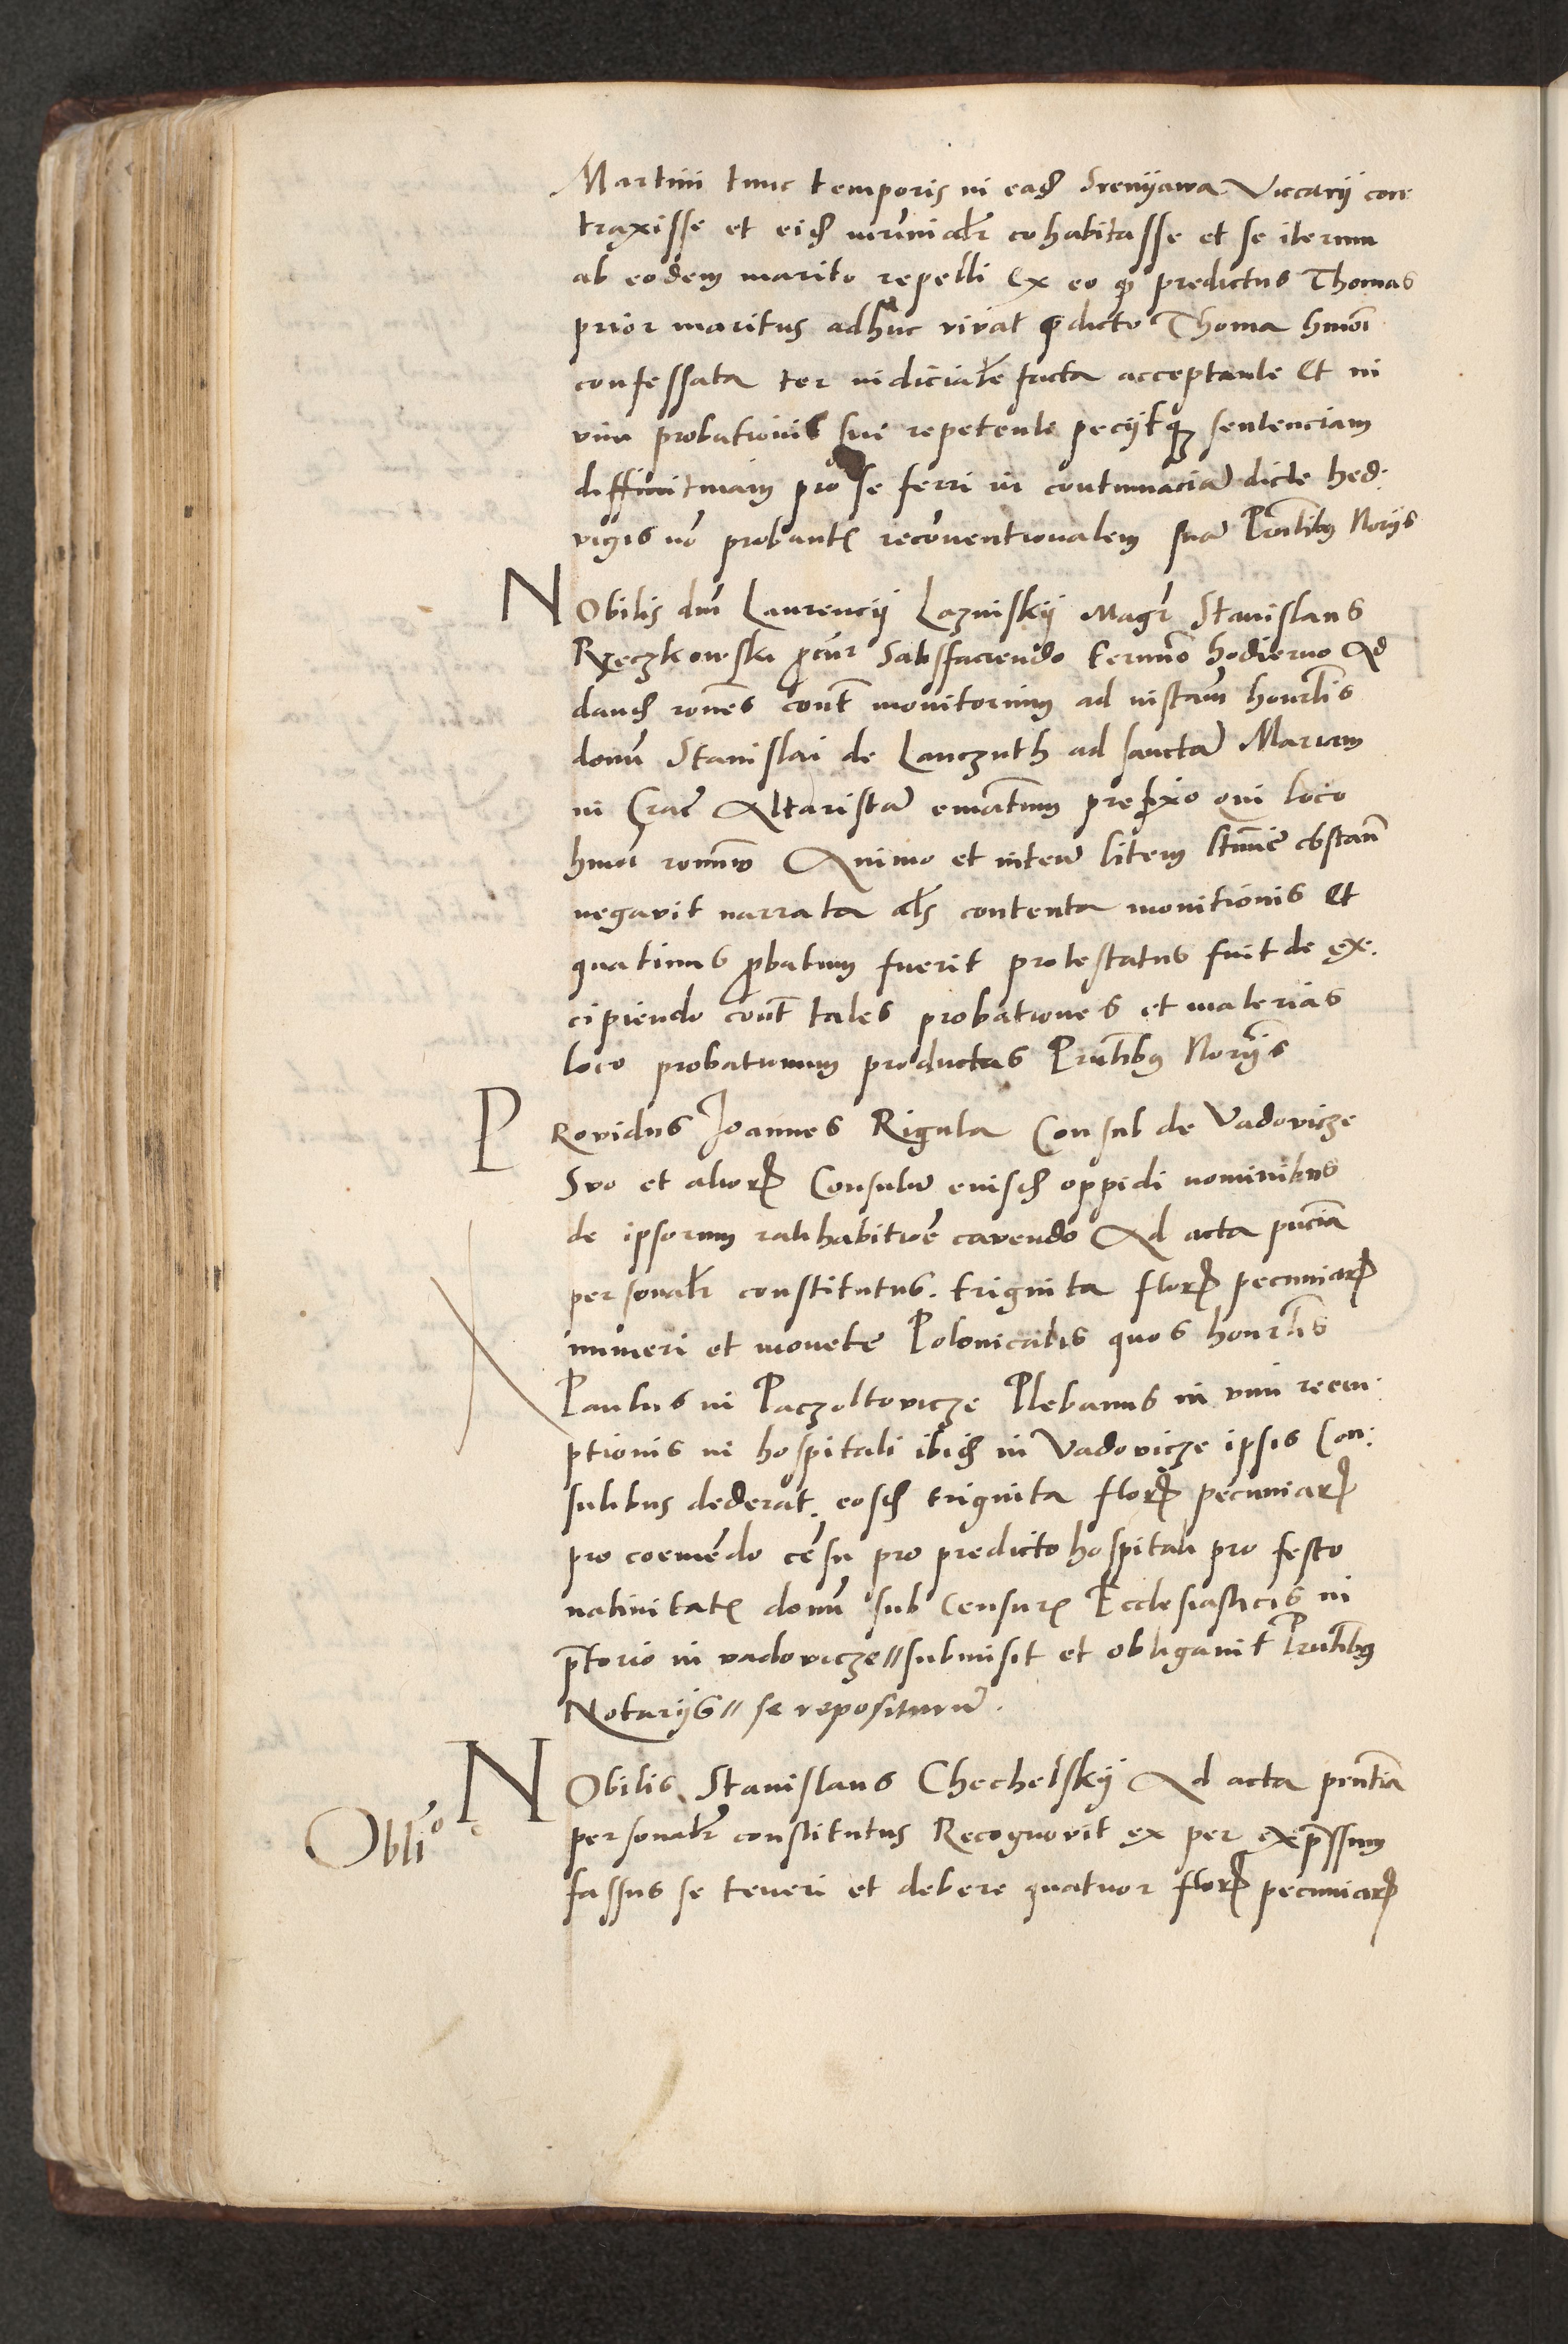 Martini tunc temporis in ead Sreniawa Viccarij con
traxisse et eid mrimialr cohabitasse et se iterum
ab eodem marito repelli Ex eo q predictus Thomas
prior maritus adhuc vivat p dicto Thoma hmoi
confessata ter iudicialr facta acceptante Et in
vim probationis sue repetente peciitq sentenciam
diffinitivam pro se ferri in contumacia dicte hed.
vigis no probantis reconventionalem sua Pntibus Norijs
NObilis dni Laurencij Lazniskij Magr Stanislaus
Rzeczkowski pcur Satisfaciendo termno hodierno Ad
dand rones cont monitorium ad instam honrlis
domi Stanislai de Lanczuth ad sancta Mariam
in Crac Altarista emanatum prefixo qui loco
hmoi ronum Animo et inten litem
negavit narrata als contenta monitionis Et
quatinus pbatum fuerit protestatus fuit de ex.
cipiendo cont tales probationes et materias
loco probationum productas Pntibus Norijs
PRovidus Joannes Rigula Consul de Vadovicze
Suo et alior Consulu eiusd oppidi nominibus
de ipsorum ratihabitioe cavendo Ad acta pncia
personalr constitutus. triginta flor pecuniar
numeri et monete Polonicalis quos honrlis
Paulus in Paczoltovicze Plebanus in vim reem
ptionis in hospitali ibid in Vadovicze ipsis Con:
sulibus dederat. eosd triginta flor pecuniar
pro coemendo cesu pro predicto hospitali pro festo
nativitatis domi sub censuris Ecclesiasticis in
ptorio in vadovicze // submisit et obligavit Pntibus
Notarijs // se repositurum.
NObilis Stanislaus Chechelskij Ad acta pntia
Oblio
personalr constitutus Recognovit ex per expssum
fassus se teneri et debere quatuor flor pecuniar